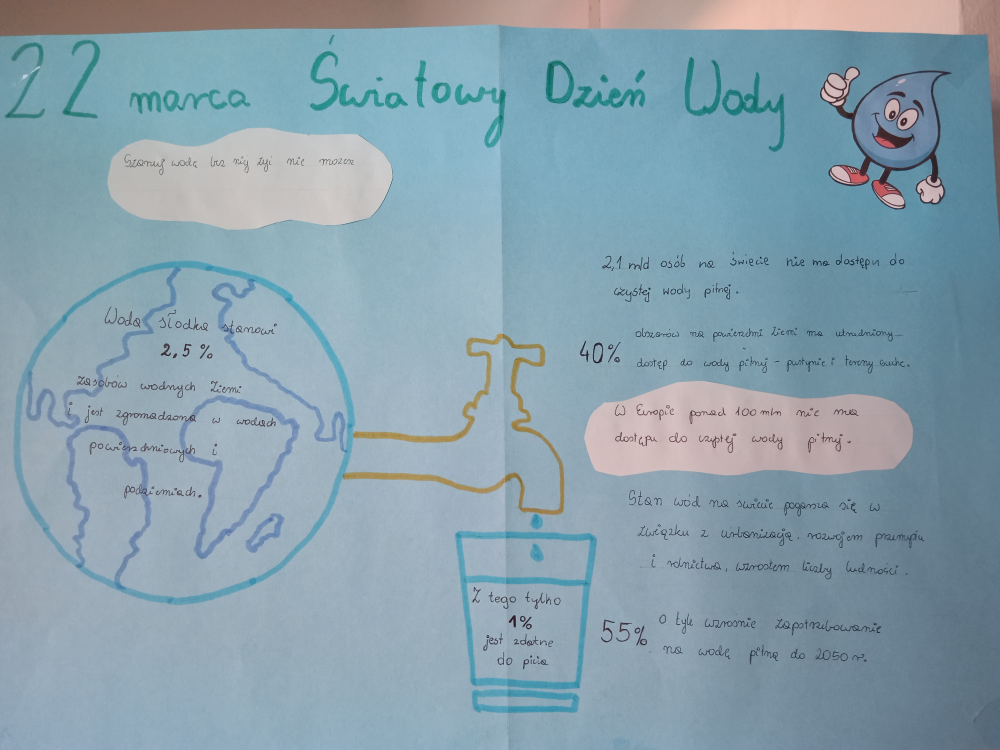 22 marca Światowy Dzień Wody
Szanuj wodę bez niej żyi nie możesz
Woda słodka stanowi
2,5 %
zasobów wodnych Ziemi
i jest zgromadzona w wodach
powierzchniowych i
podziemiach.
Z tego tylko
1%
jest zdatne
do picia
2,1 mld osób na święcie nie ma dostępu do
czystej wody pitnej.
40% obszarów na powierzchni Ziemi ma utrudniony
dostęp do wody pitnej - pustynie i tereny suche.
W Europie ponad 100 mln nie ma
dostępu do czystej wody pitnej.
Stan wód na świcie pogarsza się w
związku z urbanizacją, rozwojem przemysłu
i rolnictwa, wzrostem liczby ludności.
55% O tyle wzrośnie zapotrzebowanie
na wodę pitną do 2050 r.